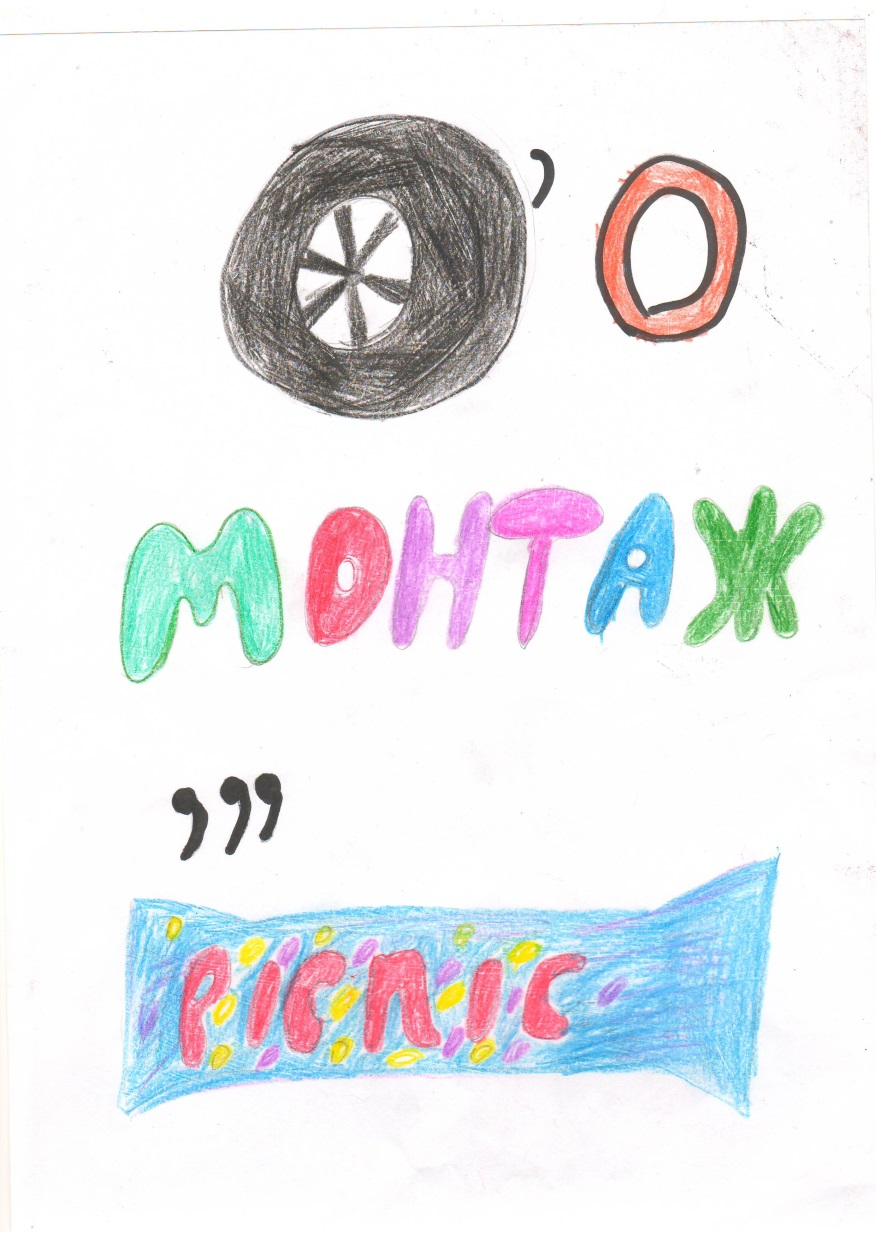 ’ О
МОНТАЖ
,,,
picnic